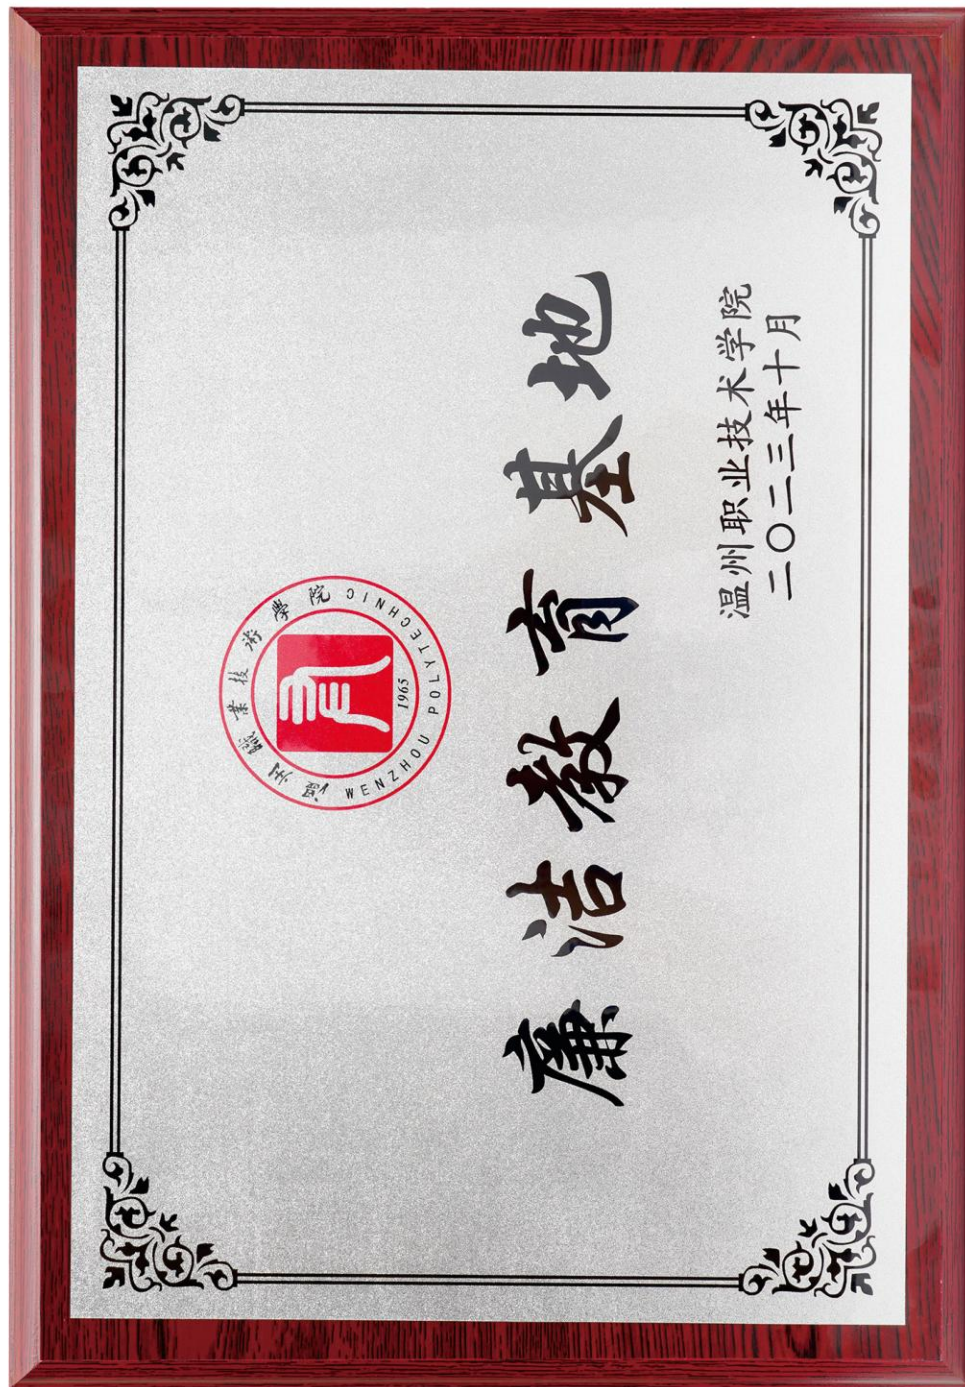 溫州職業技術學院
WENZHOU POLYTECHNIC
1965
廉洁教育基地
温州职业技术学院
二〇二三年十月